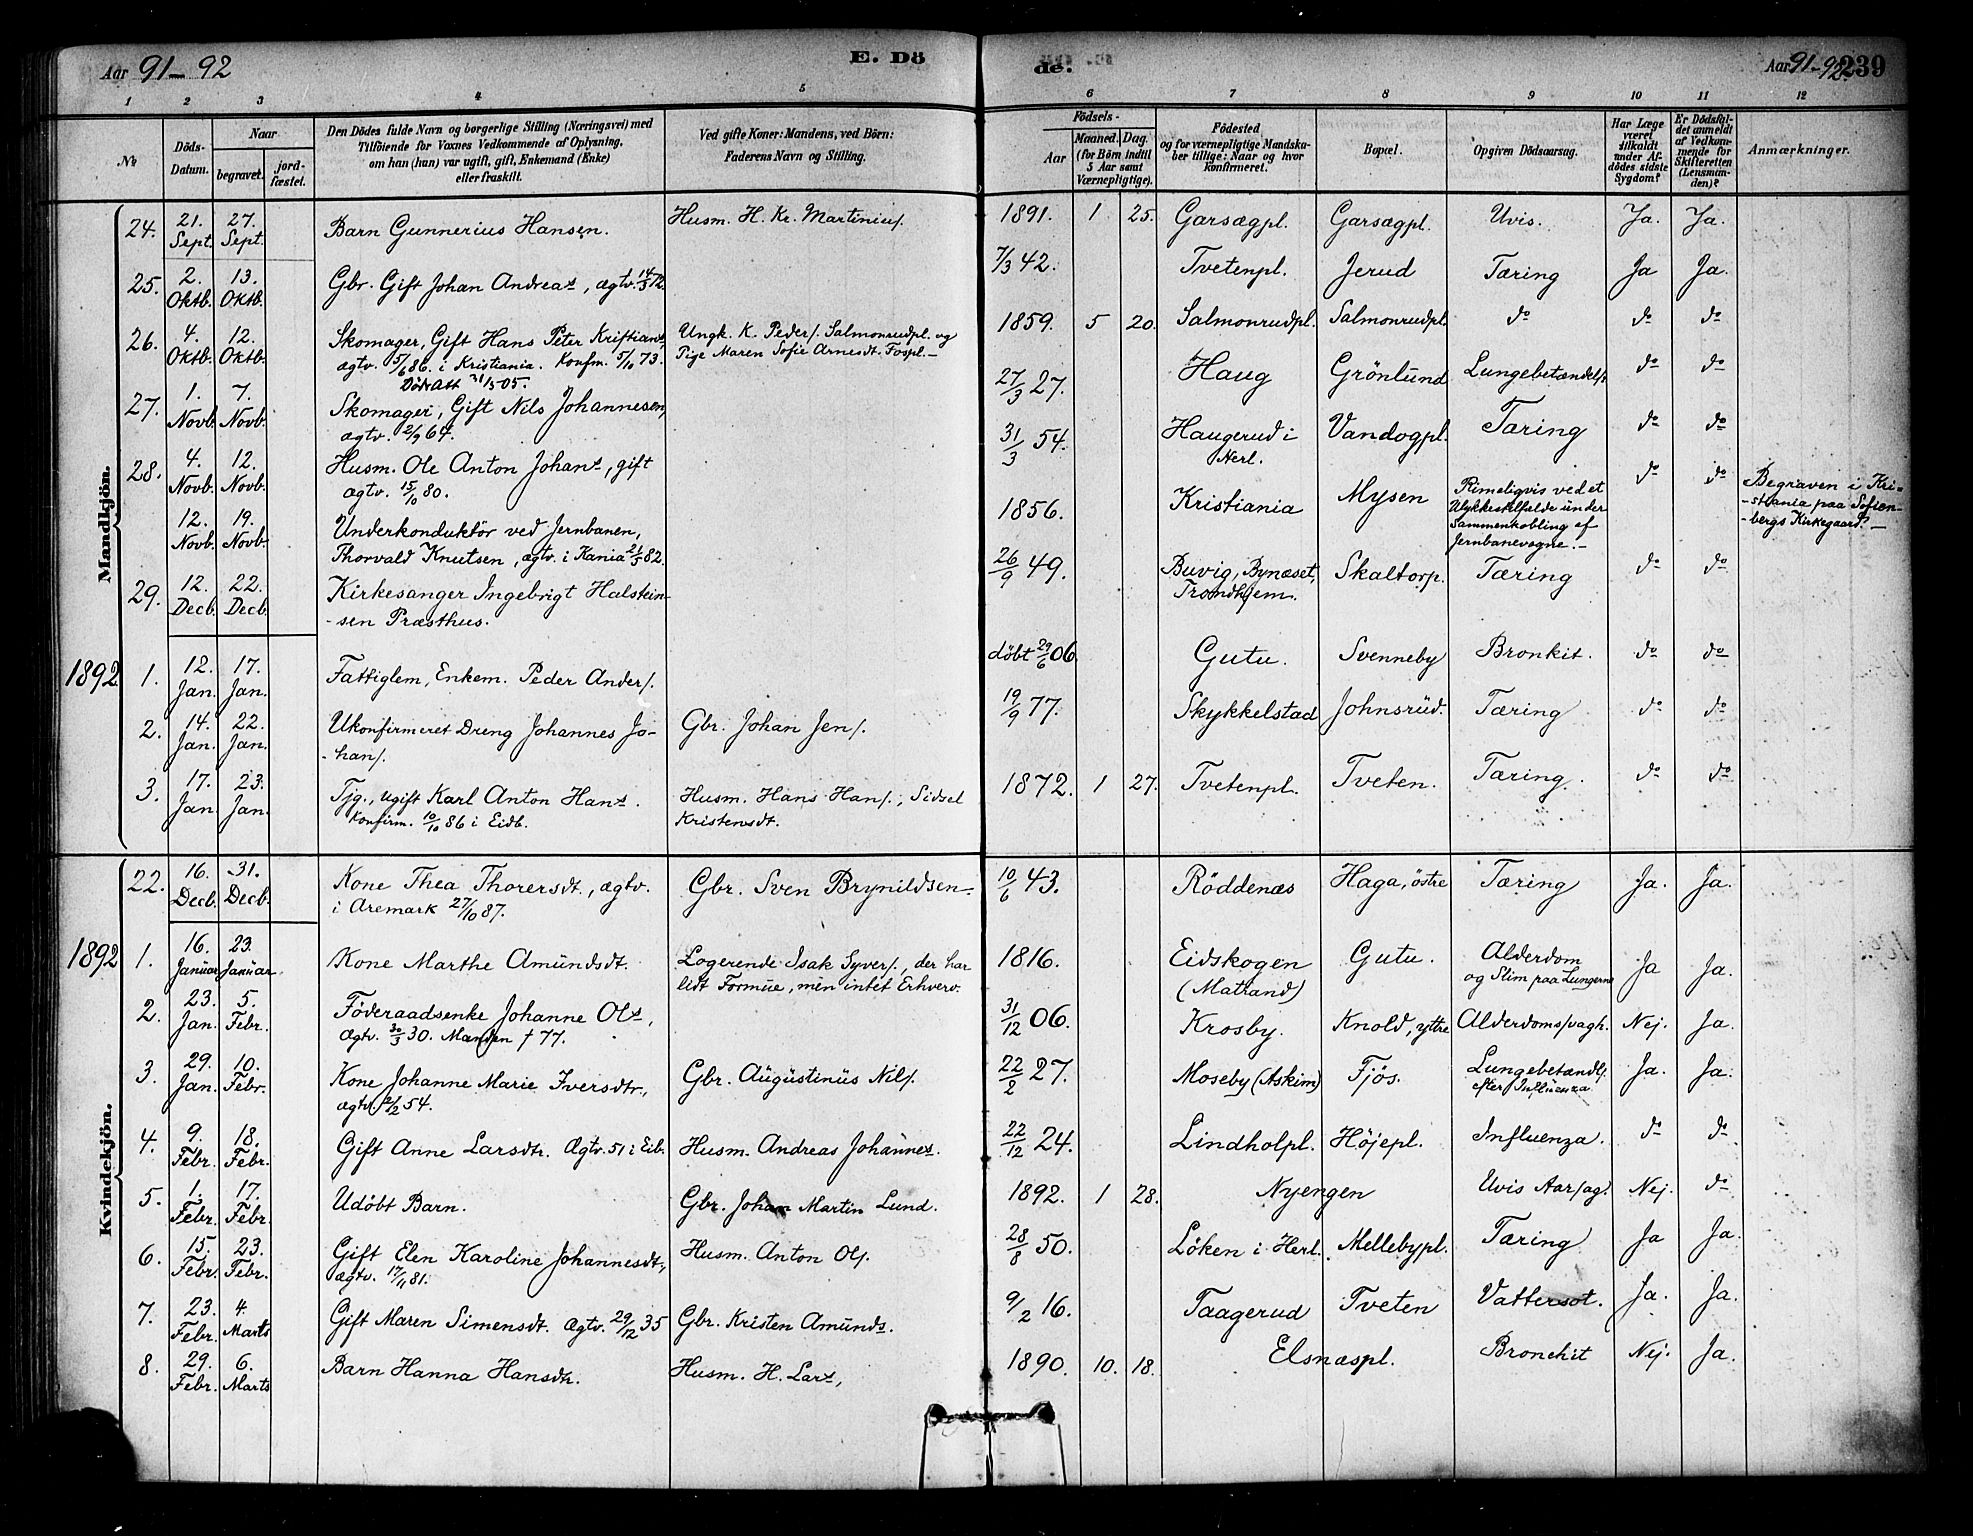 Aar 91-92
E. Dö
de.
Aar 91-92
239
1 2 3 4 5 6 7 8 9 10 11 12
No
Döds-Datum.
Naar
begravet.
jord-fæstet.
Den Dödes fulde Navn og borgerlige Stilling (Næringsvei) med
Tilföiende for Voxnes Vedkommende af Oplysning,
om han (hun) var ugift, gift, Enkemand (Enke)
eller fraskilt.
Ved gifte Koner: Mandens, ved Börn:
Faderens Navn og Stilling.
Födsels-
Aar
Maaned. Dag.
(for Börn indtil
5 Aar samt
Værnepligtige).
Födested
og for værnepligtige Mandska-
ber tillige: Naar og hvor
konfirmeret.
Bopæl.
Opgiven Dödsaarsag.
Har Læge
været
tilkaldt
under Af-
dödes sidste
Sygdom?
Er Dödsfal-
det anmeldt
af Vedkom-
mende for
Skifteretten
(Lensman-
den)?
Anmærkninger.
Mandkjön.
24. 21. Sept. 27. Sept. Barn Gunnerius Hansen. Husm. H. Kr. Martinius/. 1891. 1 25. Garsægpl. Garsægpl. Uvis. Ja. Ja.
25. 2. Oktb. 13. Oktb. Gbr. Gift Johan Andreas, ægtv. 14/3 72. 7/3 42. Tvetenpl. Jerud Tæring Ja Ja.
26. 4. Oktb. 12. Oktb. Skomager, Gift Hans Peter Kristians, Ungk. K. Peder/. Salmonrudpl. og 1859. 5 20. Salmonrudpl. Salmonrudpl. do do do
ægtv. 5/6 86. i Kristiania. Konfm. 5/10 73. Pige Maren Sofie Arnesdt. Fospl.-
Dödsatt 31/5 05.
27. 1. Novb. 7. Novb. Skomager, Gift Nils Johannesen, 27/3 27. Haug Grönlund Lungebetændels/ do do
ægtv. 2/9 64.
28. 4. Novb. 12. Novb. Husm. Ole Anton Johans, gift 31/3 54. Haugerud i Herl. Vandogpl. Tæring do do
ægtv. 15/10 80.
12. Novb. 19. Novb. Underkonduktör ved Jernbanen, 1856. Kristiania Mysen Rimeligvis ved et do do Begraven i Kri-
Thorvald Knutsen, ægtv. i Kania 21/5 82. Ulykkestilfælde under -stiania paa Sofien-
Sammenkobling af -bergs Kirkegaard.-
Jernbanevogne.-
29. 12. Decb. 22. Decb. Kirkesanger Ingebrigt Halstein- 26/9 49. Buvig, Bynæset, Skaltorp. Tæring do do
-sen Præsthus. Trondhjem.
1892. 1. 12. Jan. 17. Jan. Fattiglem, Enkem. Peder Anders/. döbt 29/6 06. Gutu. Svenneby Bronkit. do do
2. 14. Jan. 22. Jan. Ukonfirmeret Dreng Johannes Jo- Gbr. Johan Jens/. 19/9 77. Skykkelstad Johnsrud. Tæring do do
-hans/.
3. 17. Jan. 23. Jan. Tjg., ugift Karl Anton Hans. Husm. Hans Hans/., Sidsel 1872. 1 27. Tvetenpl. Tveten. Tæring. do do
Konfirm. 10/10 86 i Eidb. Kristensdt.
Kvindekjön.
22. 16. Decb. 31. Decb. Kone Thea Thorersdt., ægtv. Gbr. Sven Brynildsen- 10/6 43. Röddenæs Haga, östre Tæring Ja. Ja.
i Aremark 27/10 87.
1892 1. 16. Januar 23. Januar. Kone Marthe Amundsdt. Logerende Isak Syvers/., der har 1816. Eidskogen Gutu. Alderdom Ja Ja.
lidt Formue, men intet Erhverv. (Matrand) og Slim paa Lungerne
2. 23. Jan. 5. Febr. Föderaadsenke Johanne Ols, 31/12 06. Krosby. Knold, yttre Alderdomssvagh. Nej. Ja.
Ægtv. 30/3 30. Manden † 77.
3. 29. Jan. 10. Febr. Kone Johanne Marie Iversdtr., Gbr. Augustinus Nils/. 22/2 27. Moseby (Askim) Fjös. Lungebetændls. Ja. Ja.
ægtv. 2/2 54. efter Influenza
4. 9. Febr. 18. Febr. Gift Anne Larsdtr. Ægtv. 51 i Eib. Husm. Andreas Johannes. 22/12 24. Lindholpl. Höjepl. Influenza. do do
5. 1. Febr. 17. Febr. Udöbt Barn. Gbr. Johan Martin Lund. 1892. 1 28. Nyengen Uvis Aarsag. Nej. do
6. 15. Febr. 23. Febr. Gift Elen Karoline Johannesdt., Husm. Anton Ols. 28/8 50. Löken i Herl. Mellebypl. Tæring Ja Ja.
ægtv. 17/11 81.
7. 23. Febr. 4. Marts Gift Maren Simensdt. Ægtv. 29/12 35 Gbr. Kristen Amunds. 9/2 16. Taagerud Tveten Vattersot. Ja. Ja.
8. 29. Febr. 6. Marts Barn Hanna Hansdtr. Husm. H. Lars, 1890. 10. 18. Elsnæspl. Bronchit Nej. Ja.